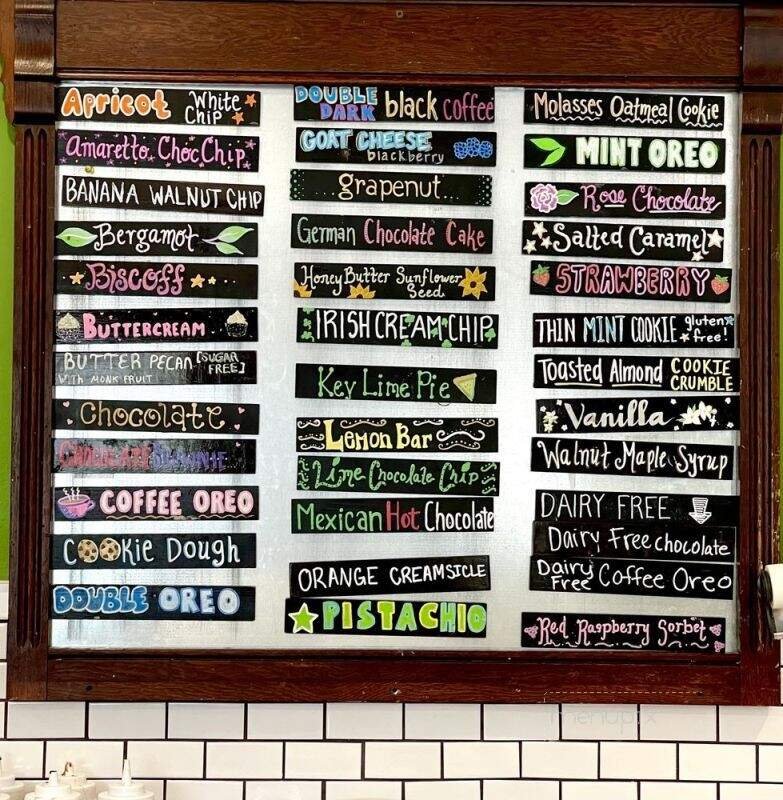 Apricot White Chip
Amaretto Choc Chip
BANANA WALNUT CHIP
Bergamot
Biscoff
BUTTERCREAM
BUTTER PECAN [SUGAR FREE]
WITH MONK FRUIT
Chocolate
CHOCOLATE BROWNIE
COFFEE OREO
COOKIE Dough
DOUBLE OREO
DOUBLE DARK black coffee
GOAT CHEESE
blackberry
grapenut
German Chocolate Cake
Honey Butter Sunflower Seed
IRISH CREAM CHIP
Key Lime Pie
Lemon Bar
Lime Chocolate Chip
Mexican Hot Chocolate
ORANGE CREAMSICLE
PISTACHIO
Molasses Oatmeal Cookie
MINT OREO
Rose Chocolate
Salted Caramel
STRAWBERRY
THIN MINT COOKIE gluten free!
Toasted Almond COOKIE CRUMBLE
Vanilla
Walnut Maple Syrup
DAIRY FREE
Dairy Free chocolate
Dairy Free Coffee Oreo
Red Raspberry Sorbet
menupix